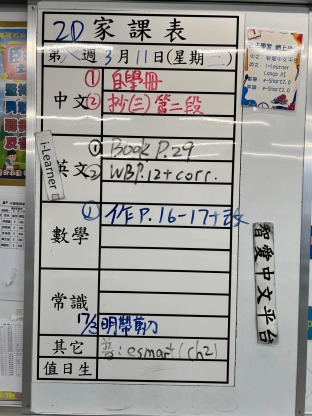 2D 家課表
第八週 3月11日(星期一)
中文 ① 自學冊
② 抄(三)第二段
英文 ① Book P.29
② WB P.12 + corr.
數學 ① 作 P. 16-17 + 改
常識
17/3 明帶剪刀
其它 普: esmart (ch2)
值日生
i-Learner
智愛中文平台